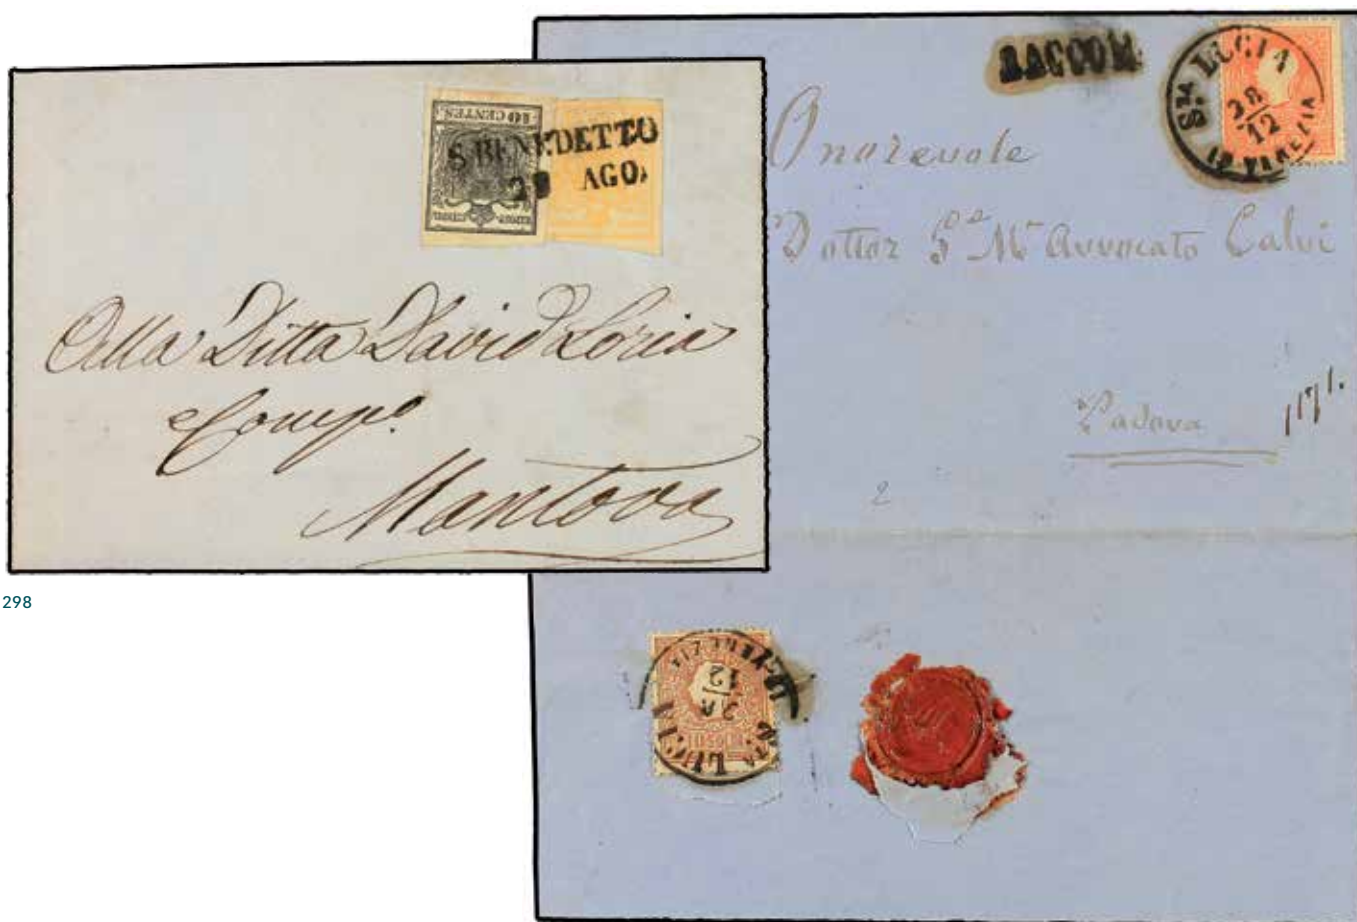 10 CENTES.
S. BENEDETTO
28 AGO.
Alla Ditta David Loria
e Comp.o
Mantova
298
RACCOM.
S.TA LUCIA
28
12
IN VENEZIA
Onorevole
Dottor Avvocato Calvi
Padova
2
S.TA LUCIA
28
12
IN VENEZIA
10 SOLDI